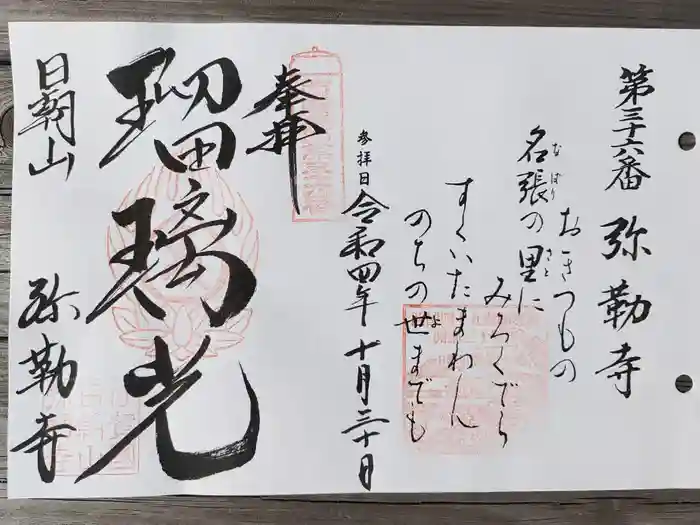 第三十六番 弥勒寺
おきつもの
名張の里に
なばり
さと
みろくでら
すくいたまわん
のちの世までも
よ
参拝日 令和四年 十月三十日
奉拝
瑠璃光
日朝山 弥勒寺